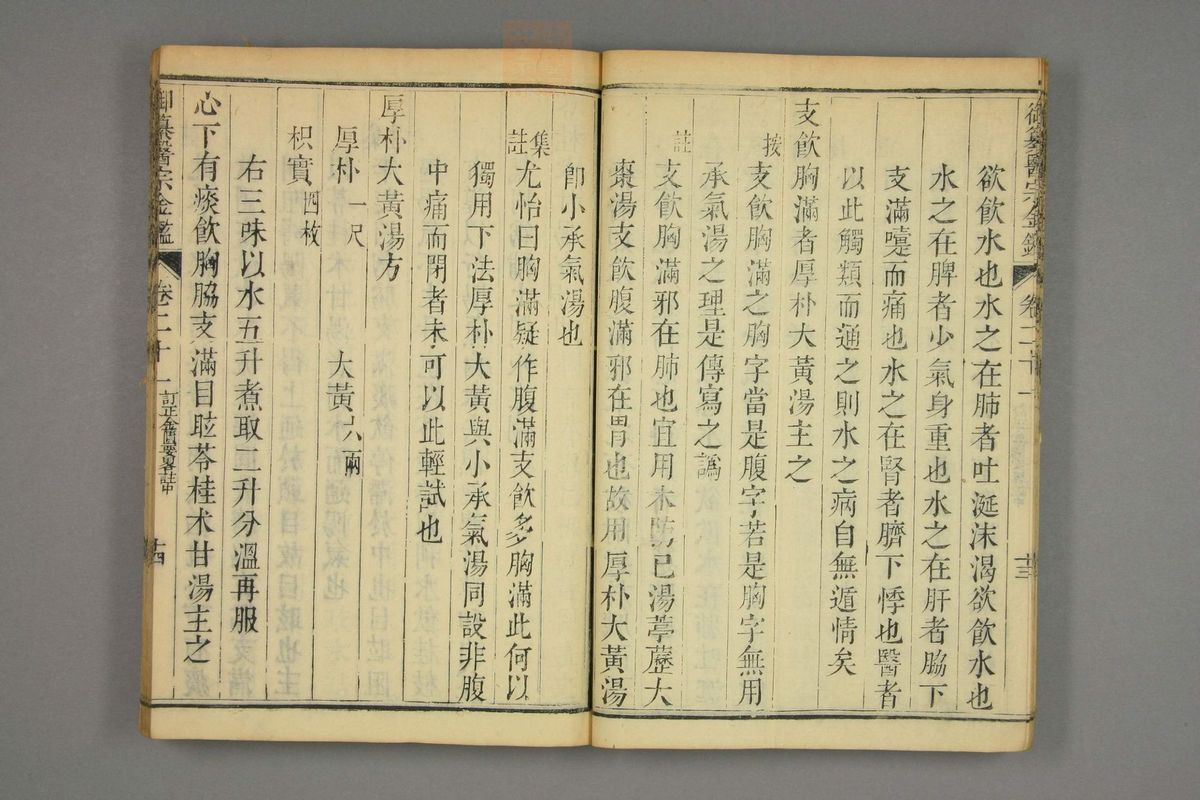 御纂醫宗金鑑 卷二十一 十三
欲飲水也水之在肺者吐涎沫渴欲飲水也
水之在脾者少氣身重也水之在肝者脇下
支滿嚏而痛也水之在腎者臍下悸也醫者
以此觸類而通之則水之病自無遁情矣
支飲胸滿者厚朴大黃湯主之
按支飲胸滿之胸字當是腹字若是胸字無用
承氣湯之理是傳寫之譌
註支飲胸滿邪在肺也宜用木防已湯葶藶大
棗湯支飲腹滿邪在胃也故用厚朴大黃湯
卽小承氣湯也
集註尤怡曰胸滿疑作腹滿支飲多胸滿此何以
獨用下法厚朴大黃與小承氣湯同設非腹
中痛而閉者未可以此輕試也
厚朴大黃湯方
厚朴一尺 大黃六兩
枳實四枚
右三味以水五升煮取二升分溫再服
心下有痰飲胸脇支滿目眩苓桂朮甘湯主之
御纂醫宗金鑑 卷二十一 訂正金匱要畧註中 十四